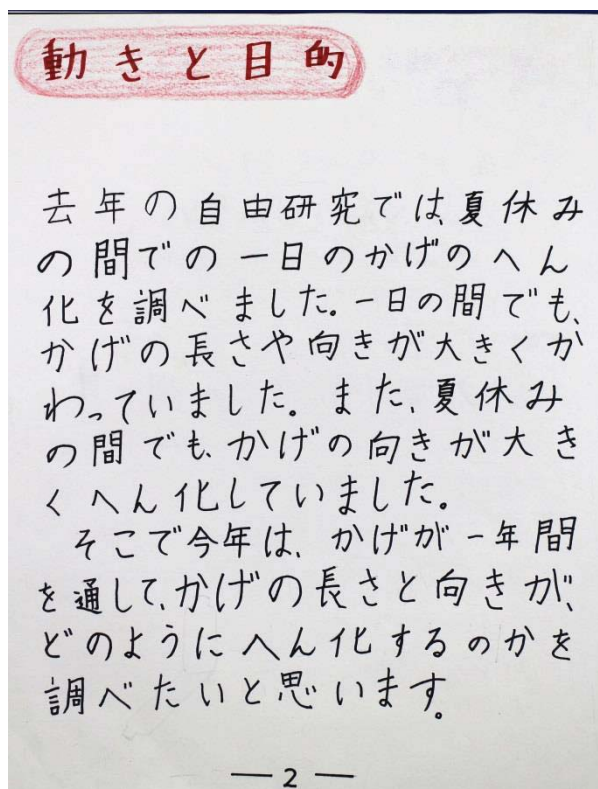 動きと目的
去年の自由研究では、夏休み
の間での一日のかげのへん
化を調べました。一日の間でも、
かげの長さや向きが大きくか
わっていました。また、夏休み
の間でも、かげの向きが大き
くへん化していました。
そこで今年は、かげが一年間
を通して、かげの長さと向きが、
どのようにへん化するのかを
調べたいと思います。
— 2 —